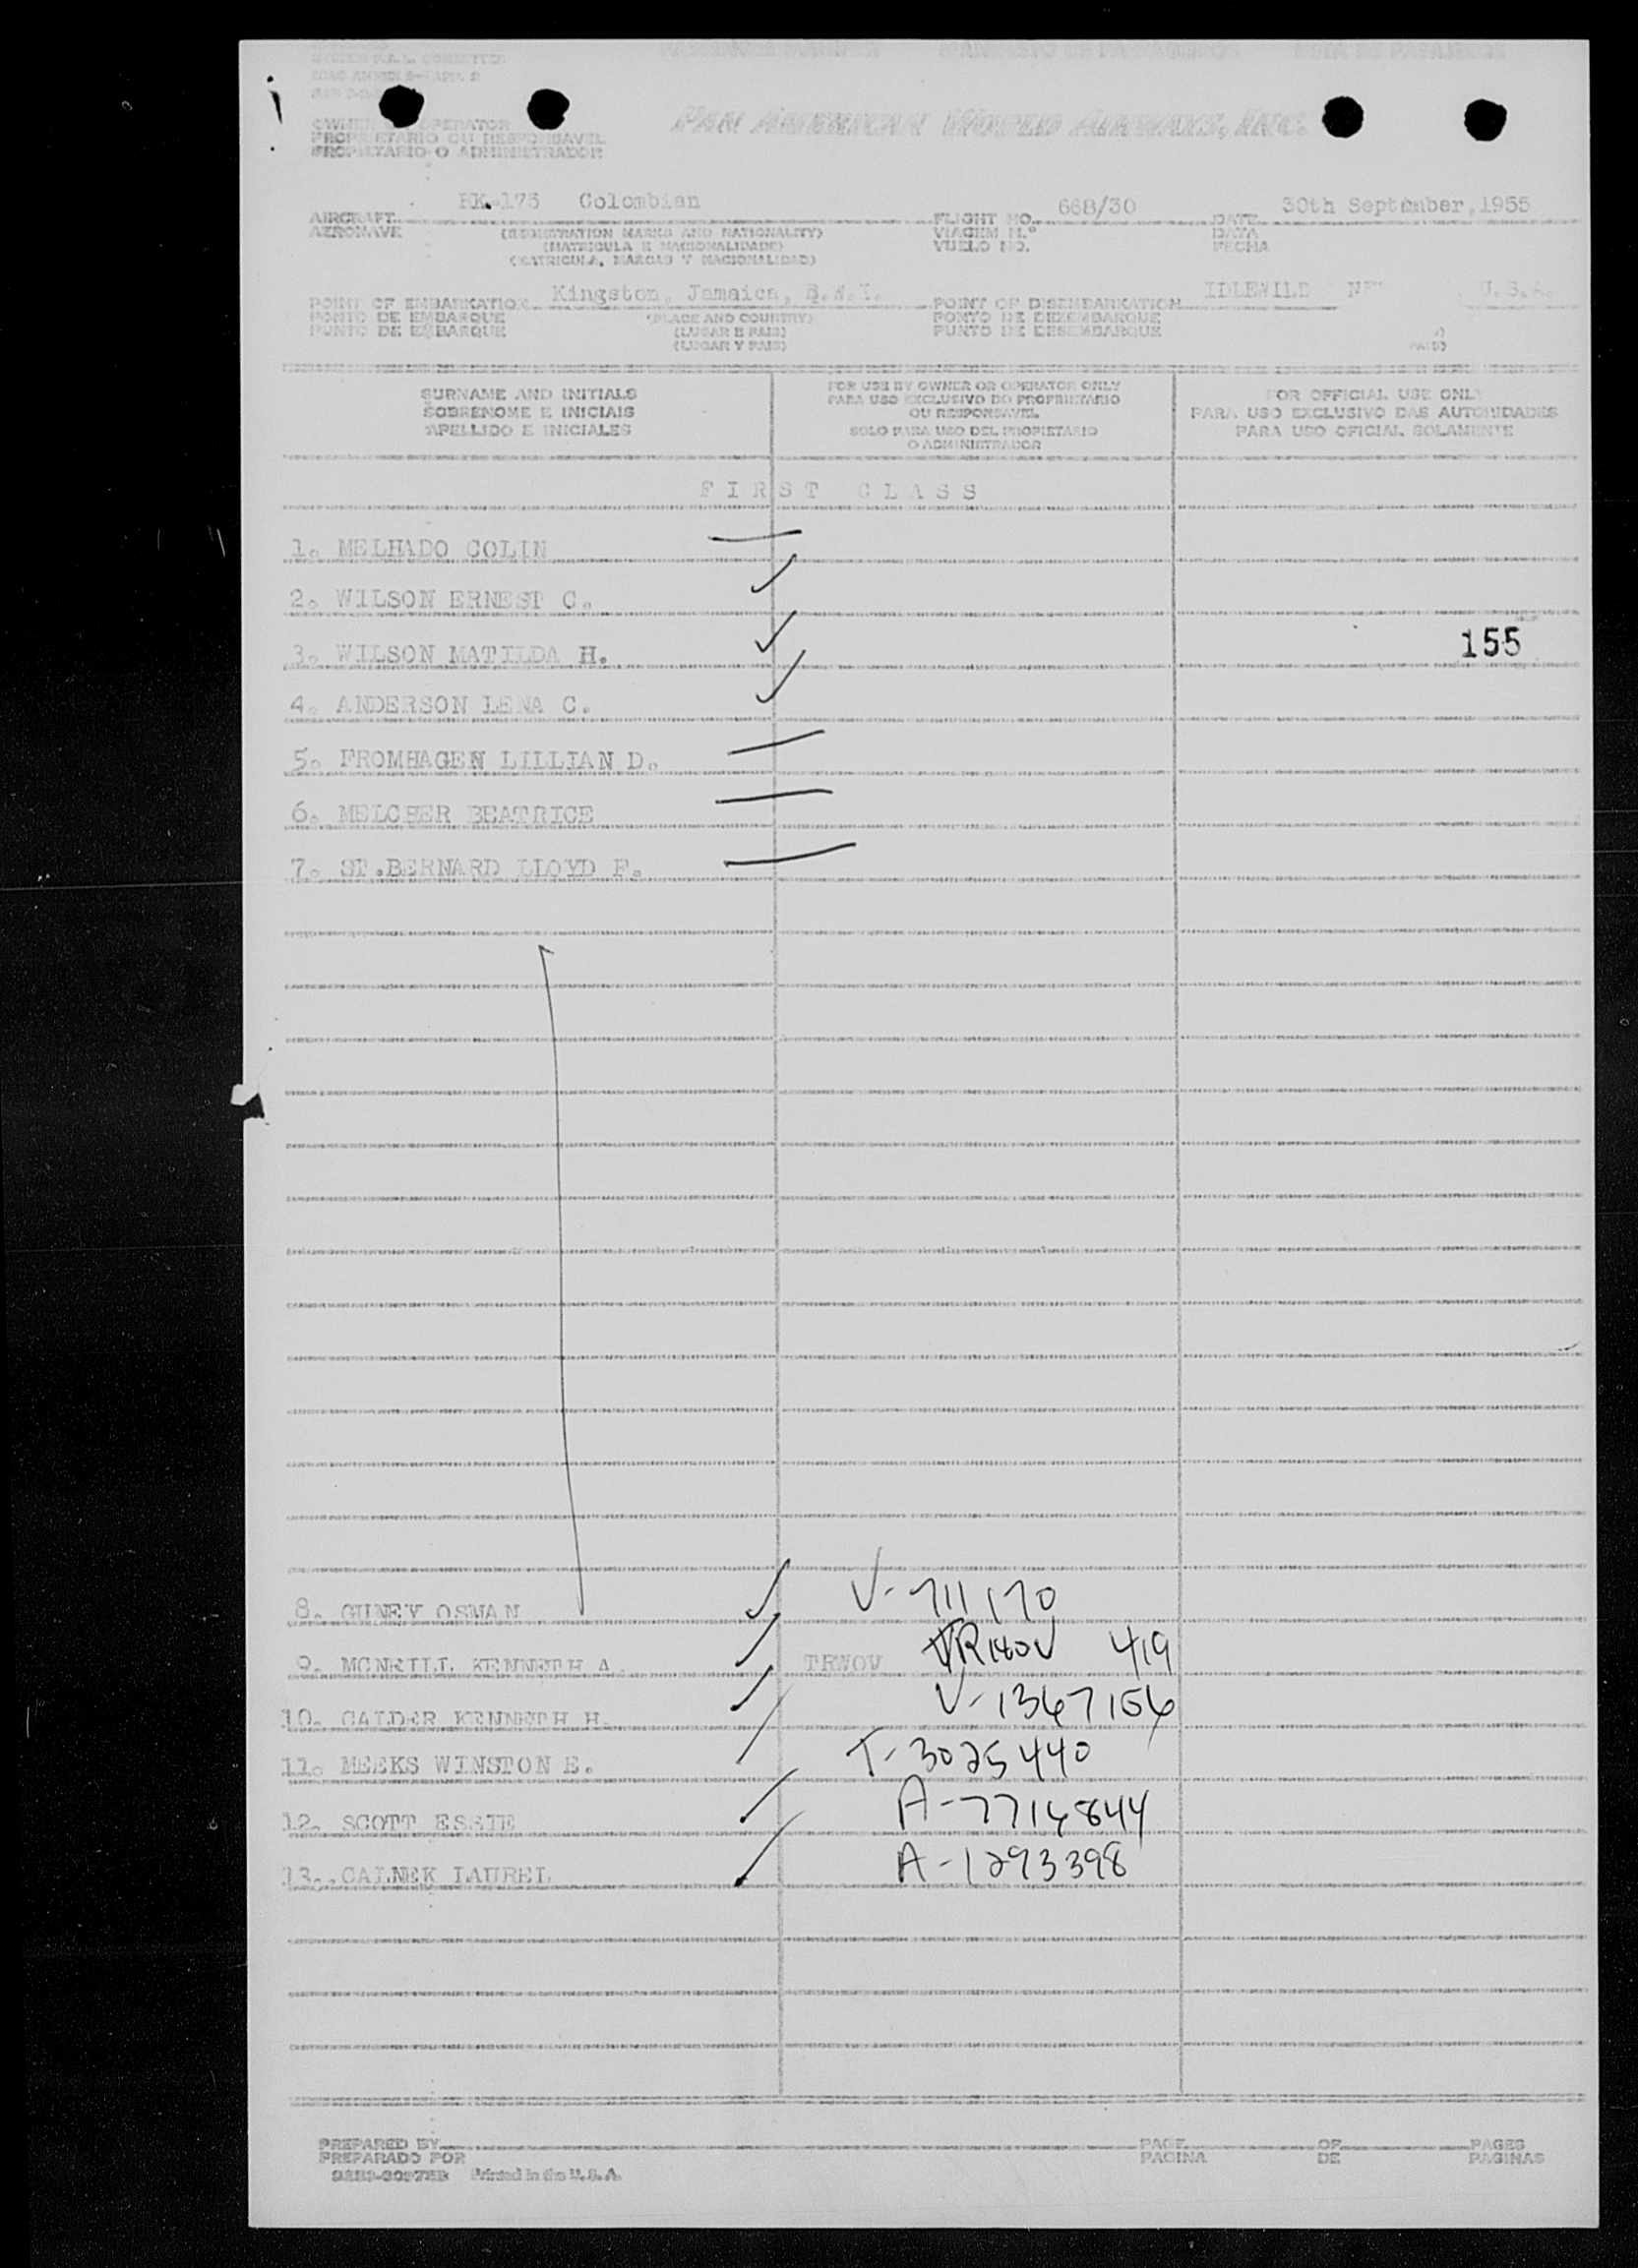 PASSENGER MANIFEST MANIFESTO DE PASSAGEIROS LISTA DE PASAJEROS
OWNER OR OPERATOR
PROPRIETARIO OU RESPONSAVEL
PROPIETARIO O ADMINISTRADOR
PAN AMERICAN WORLD AIRWAYS, INC.
HK-175 Colombian 668/30 30th September, 1955
AIRCRAFT FLIGHT NO. DATE
AERONAVE (REGISTRATION MARKS AND NATIONALITY) VIAGEM N.º DATA
(MATRICULA E NACIONALIDADE) VUELO NO. FECHA
(MATRICULA, MARCAS Y NACIONALIDAD)
Kingston, Jamaica, B.W.I. IDLEWILD U.S.A.
POINT OF EMBARKATION POINT OF DISEMBARKATION
PONTO DE EMBARQUE (PLACE AND COUNTRY) PONTO DE DESEMBARQUE
PUNTO DE EMBARQUE (LUGAR E PAIS) PUNTO DE DESEMBARQUE
(LUGAR Y PAIS) PAIS)
SURNAME AND INITIALS
SOBRENOME E INICIAIS
APELLIDO E INICIALES
FOR USE BY OWNER OR OPERATOR ONLY
PARA USO EXCLUSIVO DO PROPRIETARIO
OU RESPONSAVEL
SOLO PARA USO DEL PROPIETARIO
O ADMINISTRADOR
FOR OFFICIAL USE ONLY
PARA USO EXCLUSIVO DAS AUTORIDADES
PARA USO OFICIAL SOLAMENTE
FIRST CLASS
1. MELHADO COLIN
2. WILSON ERNEST C.
3. WILSON MATILDA H. 155
4. ANDERSON LENA C.
5. FROMHAGEN LILLIAN D.
6. MELCHER BEATRICE
7. ST.BERNARD LLOYD F.
8. GUNEY OSMAN V-711170
9. MCNEILL KENNETH A. TRWOV 419
10. CALDER KENNETH H. V-1367156
11. MEEKS WINSTON E. T-3025440
12. SCOTT ESSIE A-7714844
13. CALNEK LAUREL A-1293398
PREPARED BY PAGE OF PAGES
PREPARADO POR PAGINA DE PAGINAS
Printed in the U.S.A.